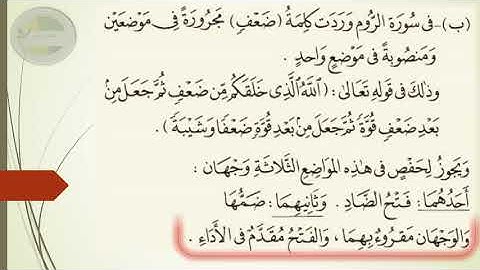 (ب)- فِى سُورَةِ الرُّومِ وَرَدَت كَلِمَةُ (ضَعْفٍ) مَجْرُورَةً فِى مَوْضِعَيْنِ
وَمَنصُوبَةً فِى مَوْضِعٍ وَاحِدٍ .
وَذٰلِكَ فِى قَولِهِ تَعَالَى : ( ٱللَّهُ ٱلَّذِى خَلَقَكُم مِّن ضَعْفٍ ثُمَّ جَعَلَ مِنۢ
بَعْدِ ضَعْفٍ قُوَّةً ثُمَّ جَعَلَ مِنۢ بَعْدِ قُوَّةٍ ضَعْفًا وَشَيْبَةً ) .
وَيَجُوزُ لِحَفْصٍ فِى هٰذِهِ المَوَاضِعِ الثَّلَاثَةِ وَجْهَانِ :
أَحَدُهُمَا : فَتْحُ الضَّادِ . وَثَانِيهِمَا : ضَمُّهَا
وَالوَجْهَانِ مَقْرُوءٌ بِهِمَا ، وَالفَتْحُ مُقَدَّمٌ فِى الأَدَاءِ .